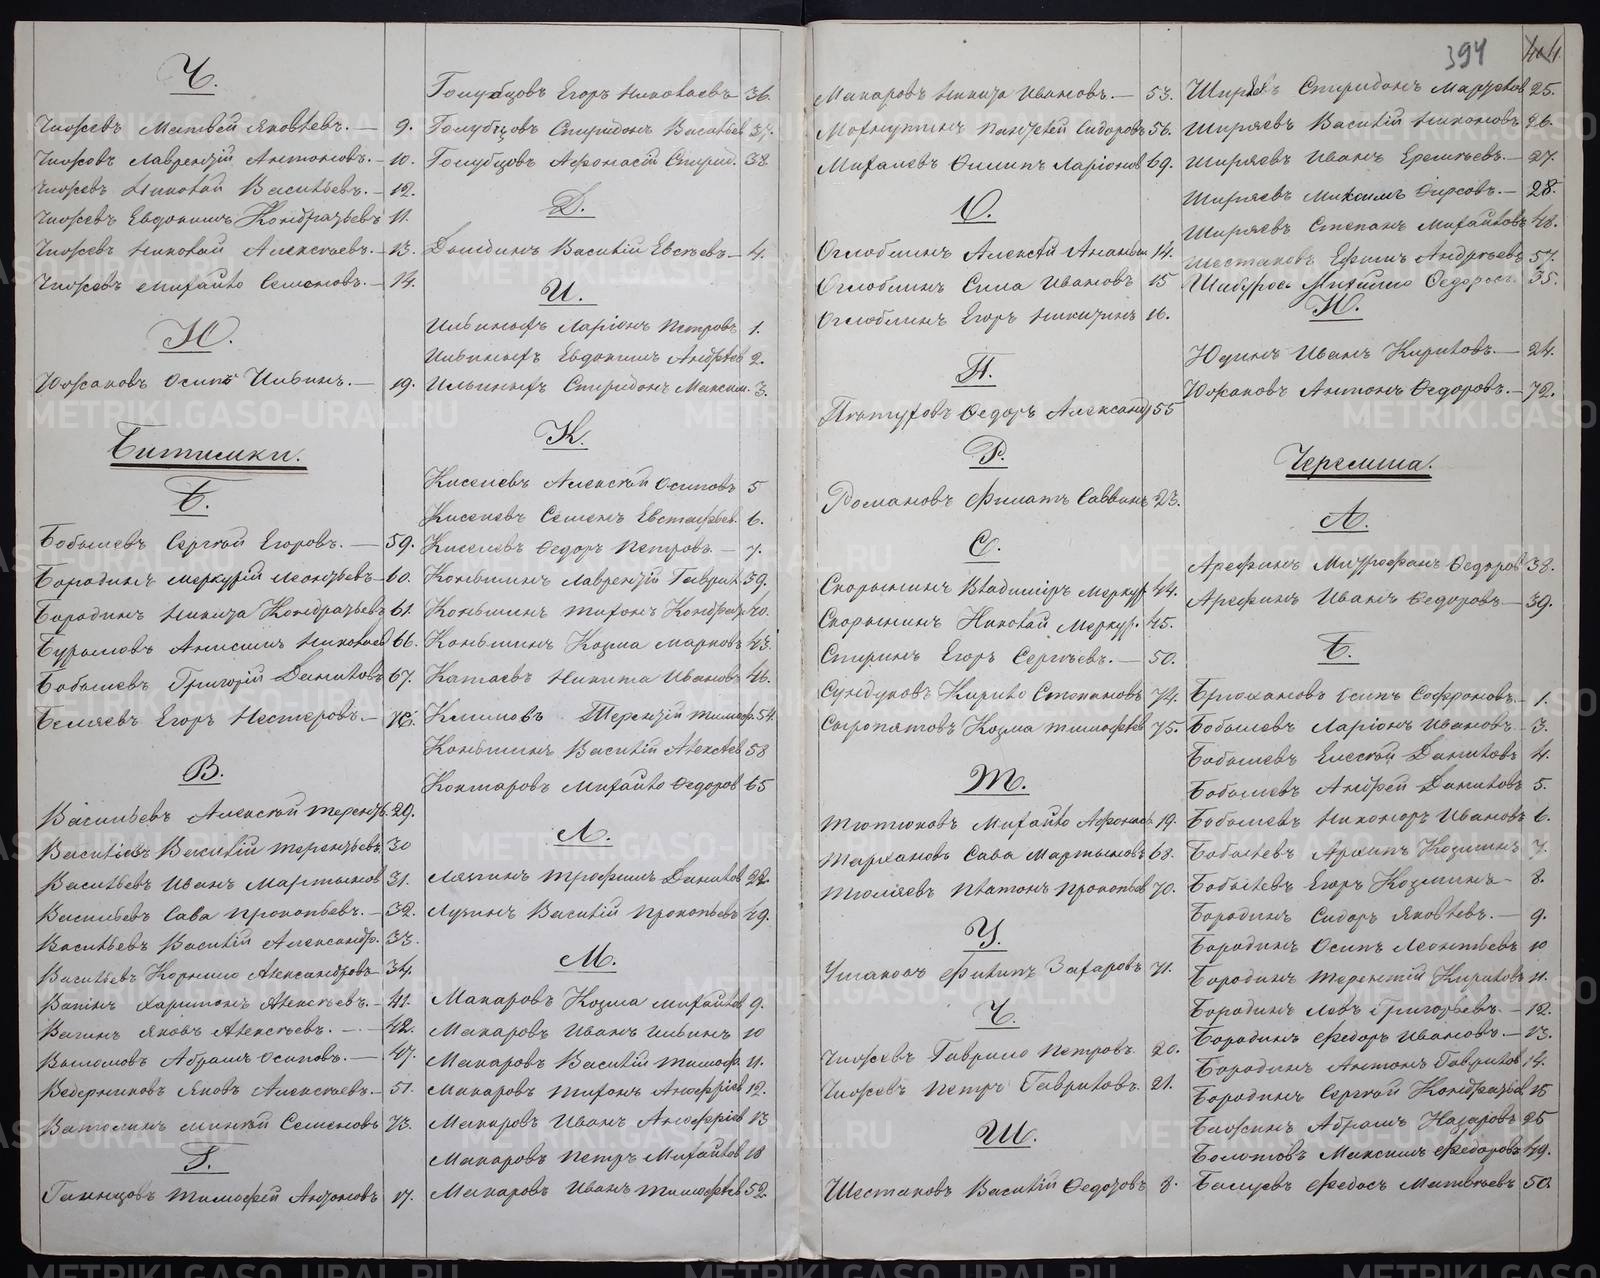 Ч.
Чюхсевъ Матвей Яковлевъ.— 9.
Лаврентiй Антоновъ.— 10.
Николай Васильевъ.— 12.
Евдокимъ Кондратьевъ 11.
Николай Алексеевъ.— 13.
Михайло Семеновъ.— 14.
Ю.
Южаковъ Осипъ Ильинъ.— 19.
Битимки.
Б.
Бобылевъ Сергей Егоровъ.— 59.
Бородинъ Меркурiй Леонтьевъ 60.
Бородинъ Никита Кондратьевъ 61.
Бурыловъ Анисимъ Николаев 66.
Бобылевъ Григорiй Данилов 67.
Беляевъ Егоръ Нестеровъ.— 76.
В.
Васильевъ Алексей Терентьев. 29.
Васильевъ Василiй Терентьевъ 30
Васильевъ Иванъ Мартынов 31.
Васильевъ Сава Прокопьевъ.— 32.
Васильевъ Василiй Александр. 33.
Васильевъ Корнило Александровъ 34.
Вагинъ Харитонъ Алексеевъ.— 41.
Вагинъ Яковъ Алексеевъ.— 42.
Абрамъ Осиповъ.— 47.
Ведерниковъ Яковъ Алексеевъ.— 51.
Ватолинъ Семеновъ 73.
Г.
Тимофей Антоновъ 17.
Голубцовъ Егоръ Николаевъ 36.
Голубцовъ Спиридонъ Васильев 37.
Голубцовъ Афонасiй Спирид. 38.
Д.
Василiй Евсеевъ— 4.
И.
Ильиныхъ Ларiонъ Петровъ 1.
Ильиныхъ Евдокимъ Андреев 2.
Ильиныхъ Спиридонъ Максим. 3.
К.
Киселевъ Алексей Осиповъ 5
Киселевъ Семенъ Евстафьев. 6.
Киселевъ Федоръ Петровъ.— 7.
Коньшинъ Лаврентiй Гаврил. 59.
Коньшинъ Тихонъ Кондрат. 40.
Коньшинъ Козма Марковъ 43.
Катаевъ Никита Ивановъ 46.
Климовъ Терентiй Тимоф. 54.
Коньшинъ Василiй Алексеев 58
Михайло Федоров 65
Л.
Трофимъ Данилов 22.
Лузинъ Василiй Прокопьевъ 49.
М.
Макаровъ Козма Михайлов 9.
Макаровъ Иванъ Ильинъ 10
Макаровъ Василiй Тимоф. 11.
Макаровъ Тихонъ Анофрiев 12.
Макаровъ Иванъ Анофрiев 13
Макаровъ Петръ Михайлов 18
Макаровъ Иванъ Тимофеев 52.
Макаровъ Никита Ивановъ.— 53.
Пантелей Сидоровъ 56.
Михалевъ Филипъ Ларiонов 69.
О.
Оглоблинъ Алексей Ананьин 14.
Оглоблинъ Сила Ивановъ 15
Оглоблинъ Егоръ Никитинъ 16.
П.
Федоръ Александр 55
Р.
Романовъ Филатъ Саввинъ 23.
С.
Скорынинъ Владимiръ Меркур. 44.
Скорынинъ Николай Меркур. 45.
Егоръ Сергеевъ.— 50.
Сундуковъ Кирило Степановъ 74.
Сыропятовъ Козма Тимофеев 75.
Т.
Тютюковъ Михайло Афонасьев 19.
Тархановъ Сава Мартыновъ 68.
Платонъ Прокопьев 70.
У.
Ушаковъ Филипъ Захаровъ 71.
Ч.
Гаврило Петровъ 20.
Петръ Гавриловъ. 21.
Ш.
Шестаковъ Василiй Федотовъ 8.
394
Ширяевъ Спиридонъ 25.
Ширяевъ Василiй Никоновъ 26.
Ширяевъ Иванъ Еремеевъ.— 27.
Ширяевъ Максимъ Фирсовъ.— 28.
Ширяевъ Степанъ Михайловъ 48.
Шестаковъ Ефимъ Андреевъ 57.
Михайло Федоров. 35.
Ю.
Юдинъ Иванъ Кириловъ.— 24.
Южаковъ Антонъ Федоровъ.— 72.
Черемша.
А.
Арефинъ Митрофанъ Федоров 38.
Арефинъ Иванъ Федоровъ— 39.
Б.
Брюхановъ Осипъ Софроновъ.— 1.
Бобылевъ Ларiонъ Ивановъ— 3.
Бобылевъ Елесей Даниловъ 4.
Бобылевъ Андрей Даниловъ 5.
Бобылевъ Никоноръ Ивановъ 6.
Бобылевъ Архипъ Козминъ 7.
Бобылевъ Егоръ Козминъ— 8.
Бородинъ Сидоръ Яковлевъ.— 9.
Бородинъ Осипъ Леонтьевъ 10
Бородинъ Терентiй Кириловъ 11.
Бородинъ Левъ Григорьевъ.— 12.
Бородинъ Федоръ Ивановъ.— 13.
Бородинъ Антонъ Гаврилов 14.
Бородинъ Сергей Кондратьев 15
Абрамъ Назаровъ 25
Болотовъ Максимъ Федоровъ 49.
Балуевъ Федосъ Матвеевъ 50.
METRIKI.GASO-URAL.RU